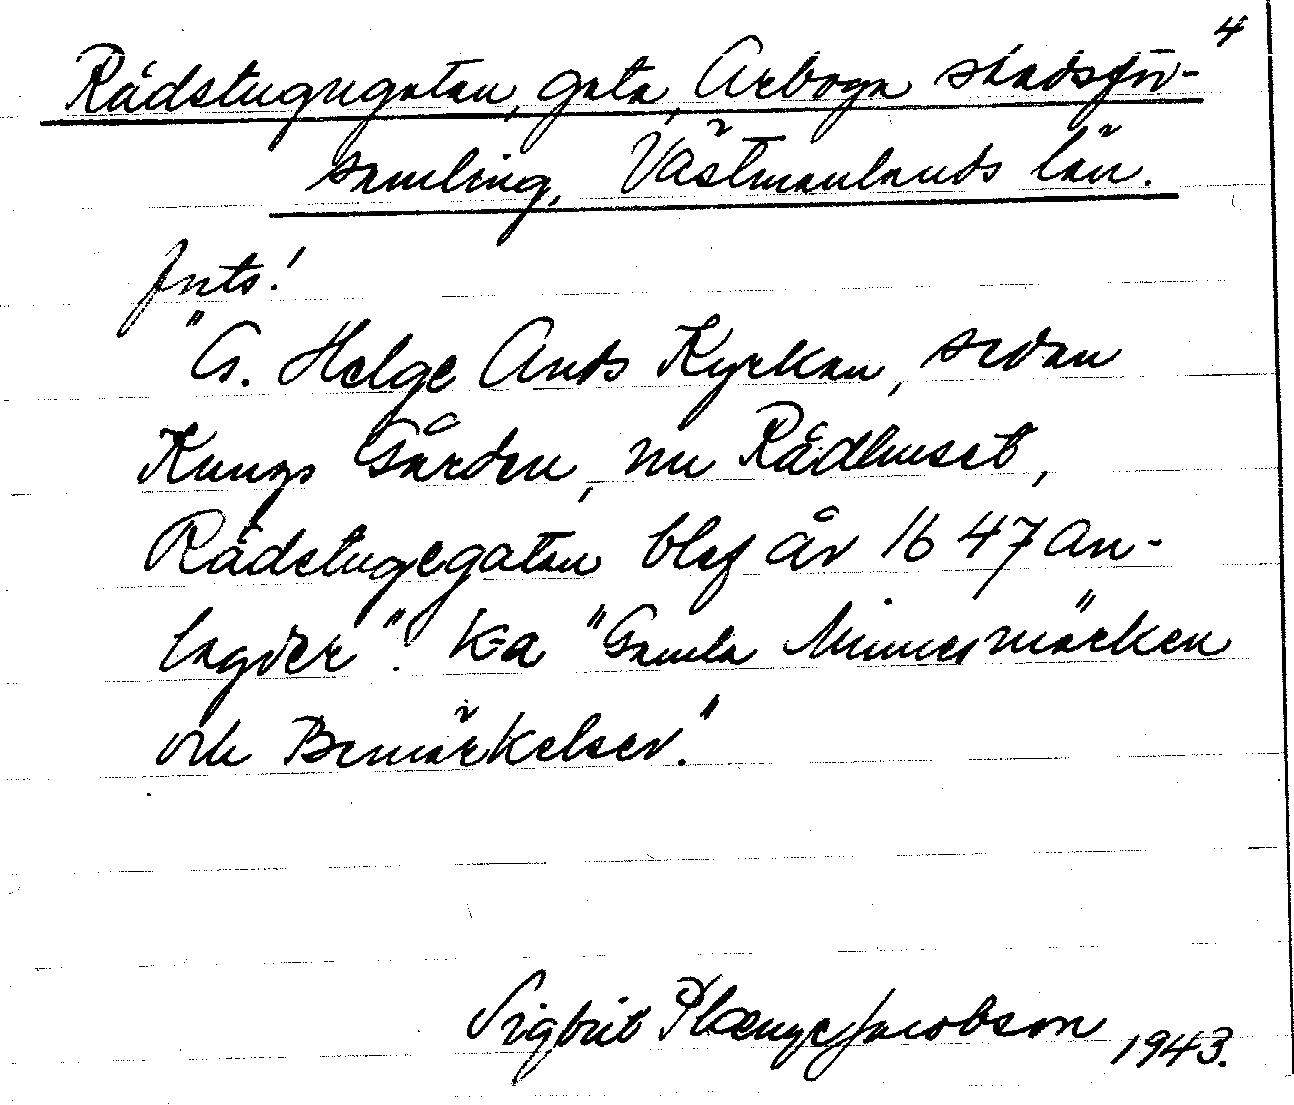 4
Rådstugugatan, gata, Arboga stadsför-
samling, Västmanlands län.
Juts!
"G. Helge Ands Kyrkan, sedan
Kungs Gården, nu Rådhuset,
Rådstugegatan blef år 1647 an-
lagder". K-a "Gamla Minnesmärken
och Bemärkelser."
Sigbrit Plænge Jacobson 1943.